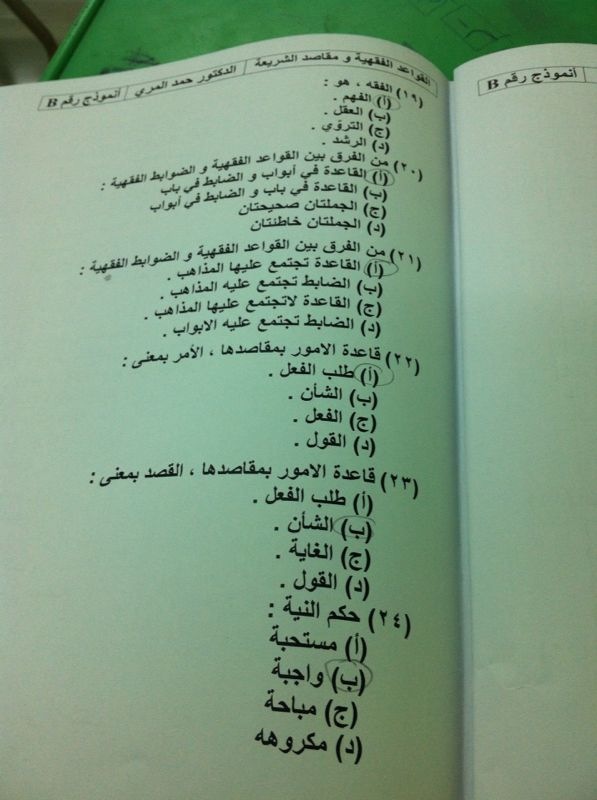 القواعد الفقهية و مقاصد الشريعة | الدكتور حمد المري | أنموذج رقم B
(١٩) الفقه ، هو :
(أ) الفهم .
(ب) العقل .
(ج) التروّي .
(د) الرشد .
(٢٠) من الفرق بين القواعد الفقهية و الضوابط الفقهية :
(أ) القاعدة في أبواب و الضابط في باب
(ب) القاعدة في باب و الضابط في أبواب
(ج) الجملتان صحيحتان
(د) الجملتان خاطئتان
(٢١) من الفرق بين القواعد الفقهية و الضوابط الفقهية :
(أ) القاعدة تجتمع عليها المذاهب .
(ب) الضابط تجتمع عليه المذاهب .
(ج) القاعدة لاتجتمع عليها المذاهب .
(د) الضابط تجتمع عليه الابواب .
(٢٢) قاعدة الامور بمقاصدها ، الأمر بمعنى :
(أ) طلب الفعل .
(ب) الشأن .
(ج) الفعل .
(د) القول .
(٢٣) قاعدة الامور بمقاصدها ، القصد بمعنى :
(أ) طلب الفعل .
(ب) الشأن .
(ج) الغاية .
(د) القول .
(٢٤) حكم النية :
(أ) مستحبة
(ب) واجبة
(ج) مباحة
(د) مكروهه
أنموذج رقم B